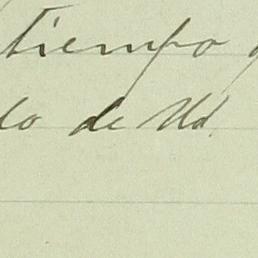 tiempo
lo de Ud.